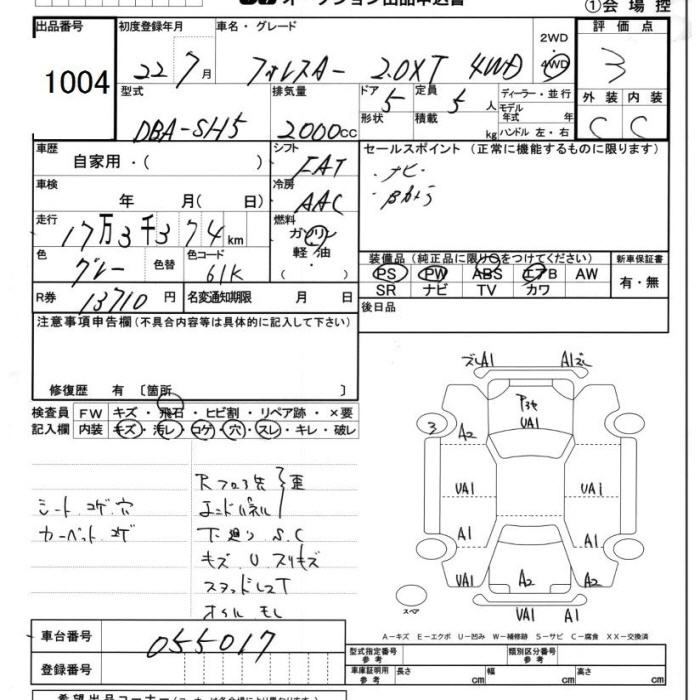 オークション出品申込書 ①会場控
出品番号 初度登録年月 車名・グレード 2WD 評価点
1004 22 7月 フォレスター 2.0XT 4WD 4WD 3
型式 排気量 ドア 5 定員 5人 ディーラー・並行 外装 内装
DBA-SH5 2000cc 形状 積載 kg モデル年式 年 C C
ハンドル 左・右
車歴 自家用・( ) シフト FAT セールスポイント (正常に機能するものに限ります)
車検 年 月( 日) 冷房 AAC ・ナビ・
走行 17万3千374km 燃料 ガソリン 軽油 ( ・ )
色 グレー 色替 色コード 61K 装備品 (純正品に限り○をつけてください) 新車保証書
PS PW ABS エアB AW 有・無
SR ナビ TV カワ
R券 13710円 名変通知期限 月 日 後日品
注意事項申告欄(不具合内容等は具体的に記入して下さい)
修復歴 有 〔箇所 〕
検査員 FW キズ・飛石・ヒビ割・リペア跡・×要
記入欄 内装 キズ・汚レ・コゲ・穴・スレ・キレ・破レ
シート.コゲ.穴
カーペット.コゲ
Rフロア先
エンドパネル
下廻り S.C
キズ U スリキズ
スタッドレスT
オイル モレ
ズレA1 A1ズレ
UA1
3 A2
UA1 UA1
A1 A1
UA1 A2 A2
UA1 A1
スペア
A－キズ E－エクボ U－凹み W－補修跡 S－サビ C－腐食 XX－交換済
車台番号 055017
登録番号
型式指定番号 参考 類別区分番号 参考
車庫証明用 参考 長さ cm 幅 cm 高さ cm
希望出品コーナー